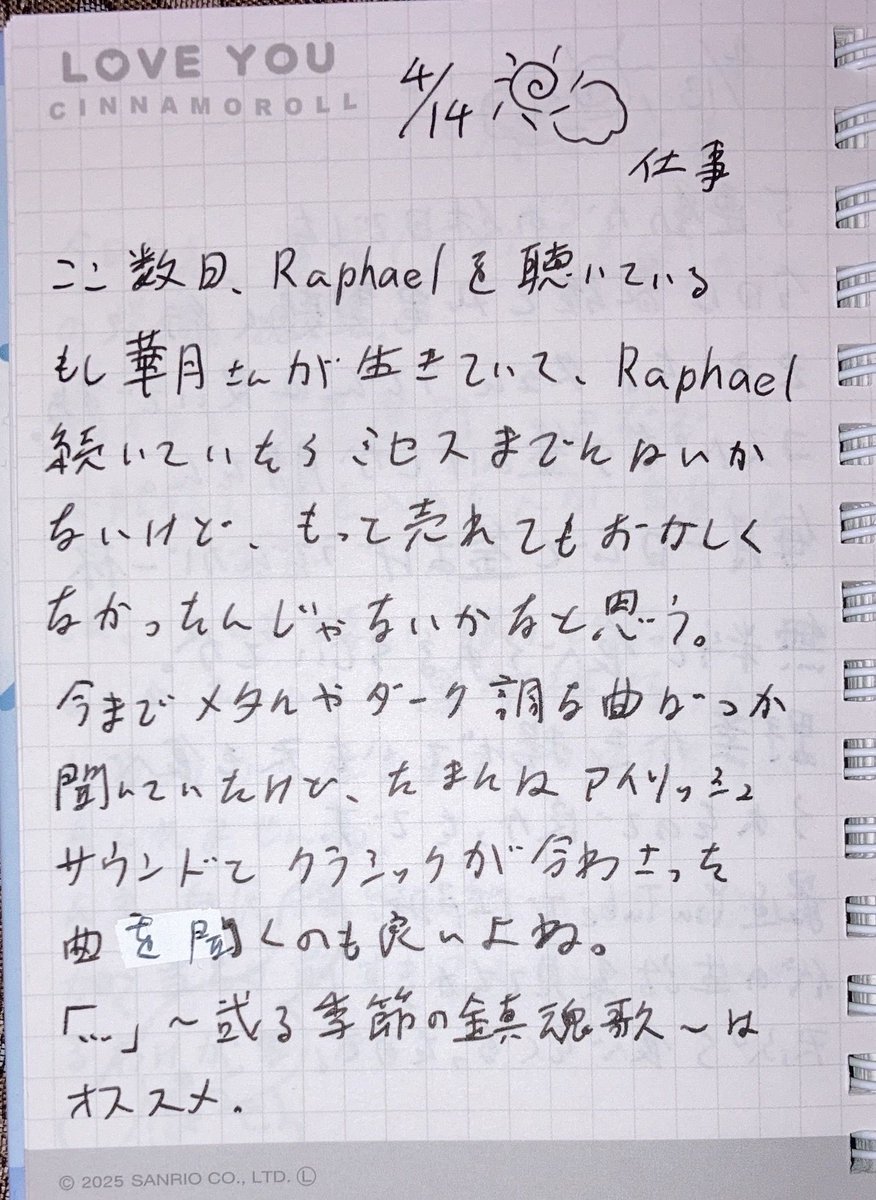 LOVE YOU
CINNAMOROLL
4/14
仕事
ここ数日、Raphaelを聴いている
もし華月さんが生きていて、Raphael
続いていたらミセスまでんはいか
ないけど、もって売れてもおかしく
なかったんじゃないかなと思う。
今までメタルやダーク調な曲ばっか
聞いていたけど、たまんはアイリッシュ
サウンドてクラシックが合わさった
曲を聞くのも良いよね。
「…」〜或る季節の鎮魂歌〜は
オススメ.
© 2025 SANRIO CO., LTD. Ⓛ